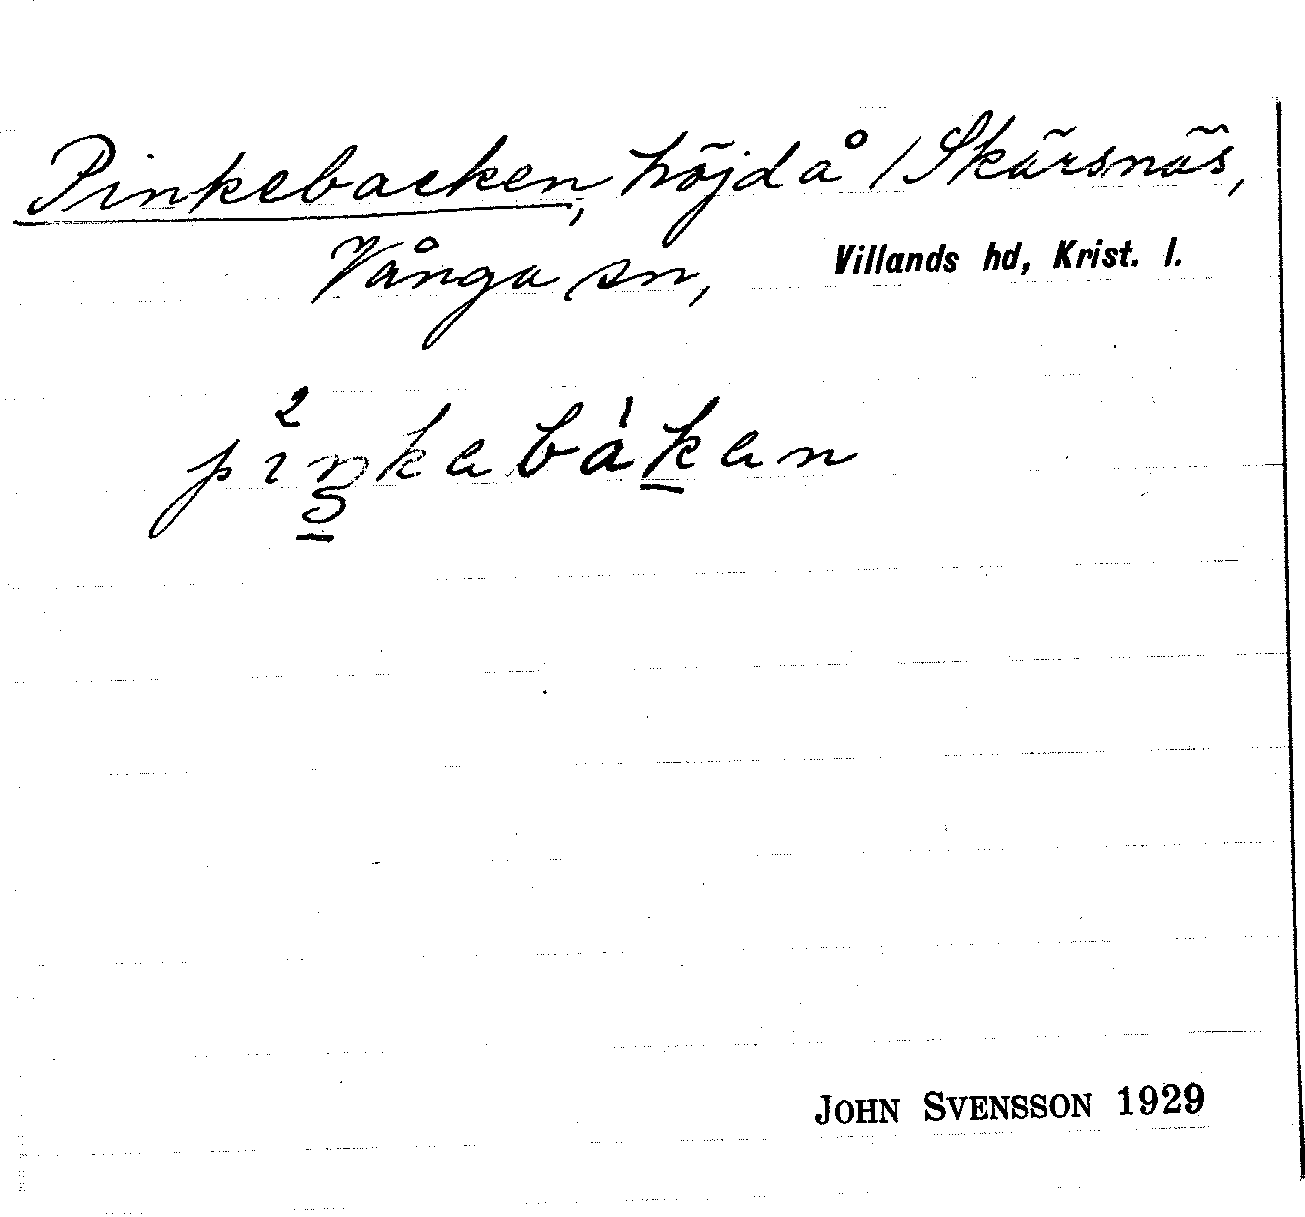 Pinkebacken, höjd å /Skärsnäs,
Vånga sn, Villands hd, Krist. l.
pı²ŋkabàkan
JOHN SVENSSON 1929